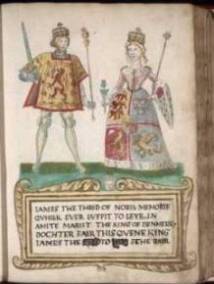 IAMES THE THIRD OF NOBIL MEMORIE
QVHILK EVER LVFFIT TO LEVE IN
AMITE MARIIT THE KING OF DENMERK
DOCHTER FAIR THIS QVENE KING
IAMES THE TO THE FAIR